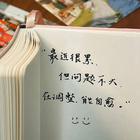 “最近很累，
但问题不大，
在调整，能自愈。”